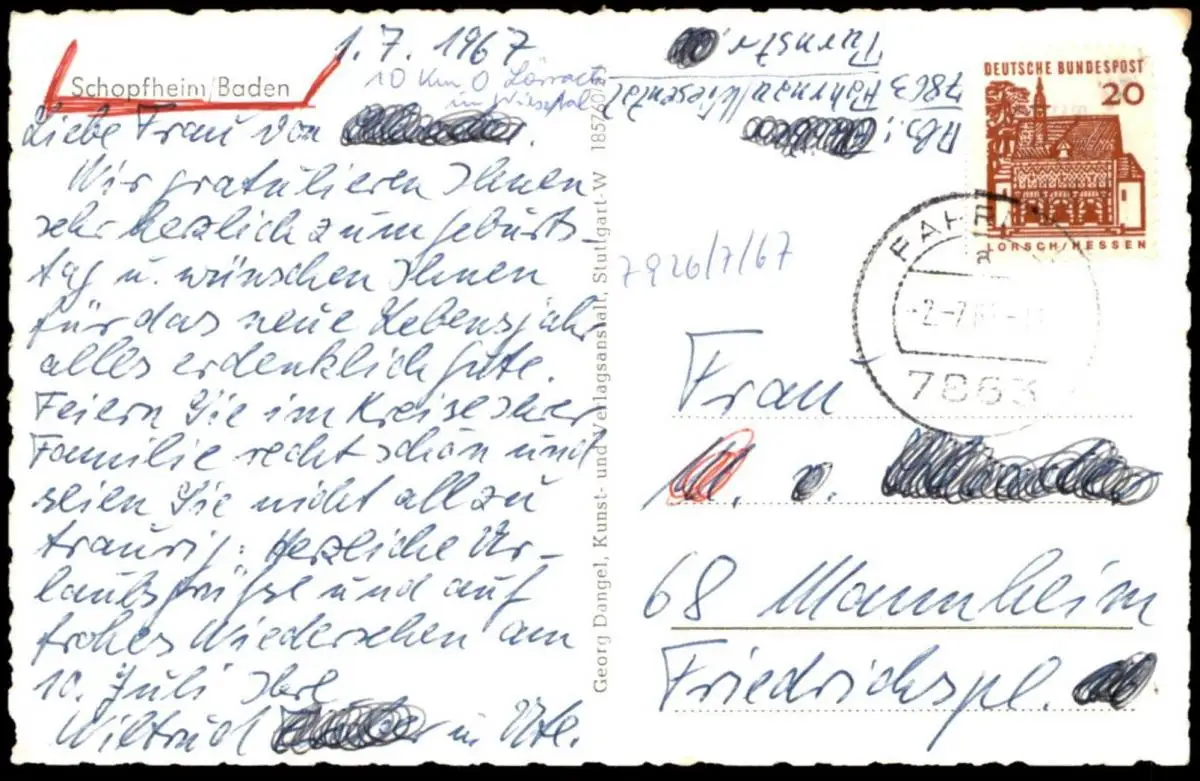 1.7.1967
Schopfheim/Baden
10 Km O Lörrach
im Wiesental
Liebe Frau von
Wir gratulieren Ihnen
sehr herzlich zum Geburts-
tag u. wünschen Ihnen
für das neue Lebensjahr
alles erdenklich Gute.
Feiern Sie im Kreise Ihrer
Familie recht schön und
seien Sie nicht allzu
traurig. Herzliche Ur-
laubsgrüße und auf
frohes Wiedersehen am
10. Juli Ihre
Wiltrud
Georg Dangel, Kunst- und Verlagsanstalt, Stuttgart-W 18570
Abs.:
7863 Fahrnau/Wiesental
Turnstr.
DEUTSCHE BUNDESPOST
20
LORSCH/HESSEN
FAHRNAU
a
-2.-7.67
7863
7926/7/67
Frau
v.
68 Mannheim
Friedrichspl.